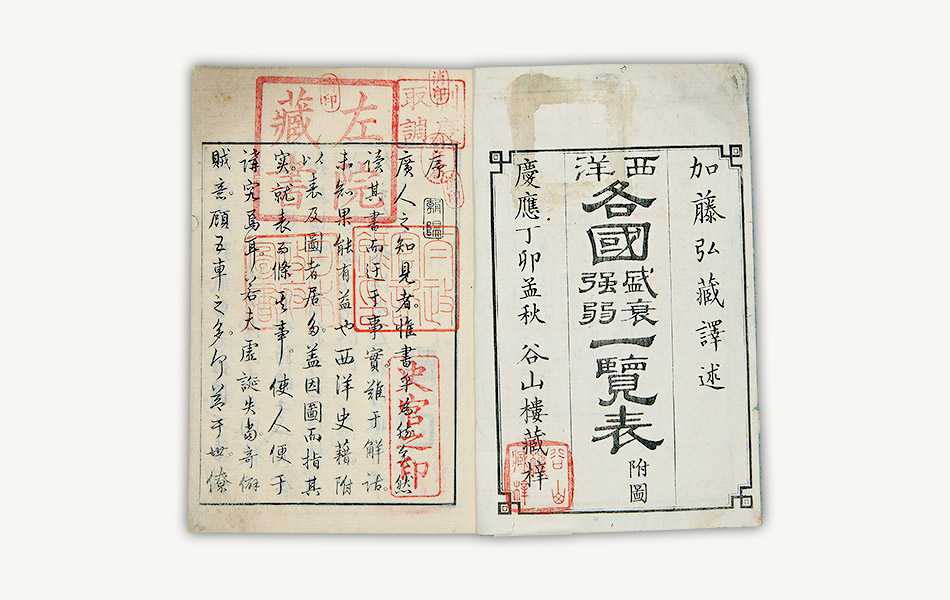 加藤弘藏譯述
西洋
各國
盛衰
強弱
一覽表
附圖
慶應丁卯孟秋 谷山樓藏梓
谷山
藏梓
序
廣人之知見者。惟書乎為然
讀其書而迂于事實。難于解詁。
未知果能有益也西洋史藉。附
以表及圖者居多。蓋因圖而指其
實。就表而條其事。使人便于
講究焉耳。若夫虛誕失當。奇僻
賊意。顧五車之多。
于世。僚
左院
藏書
取調
史官之印
消印